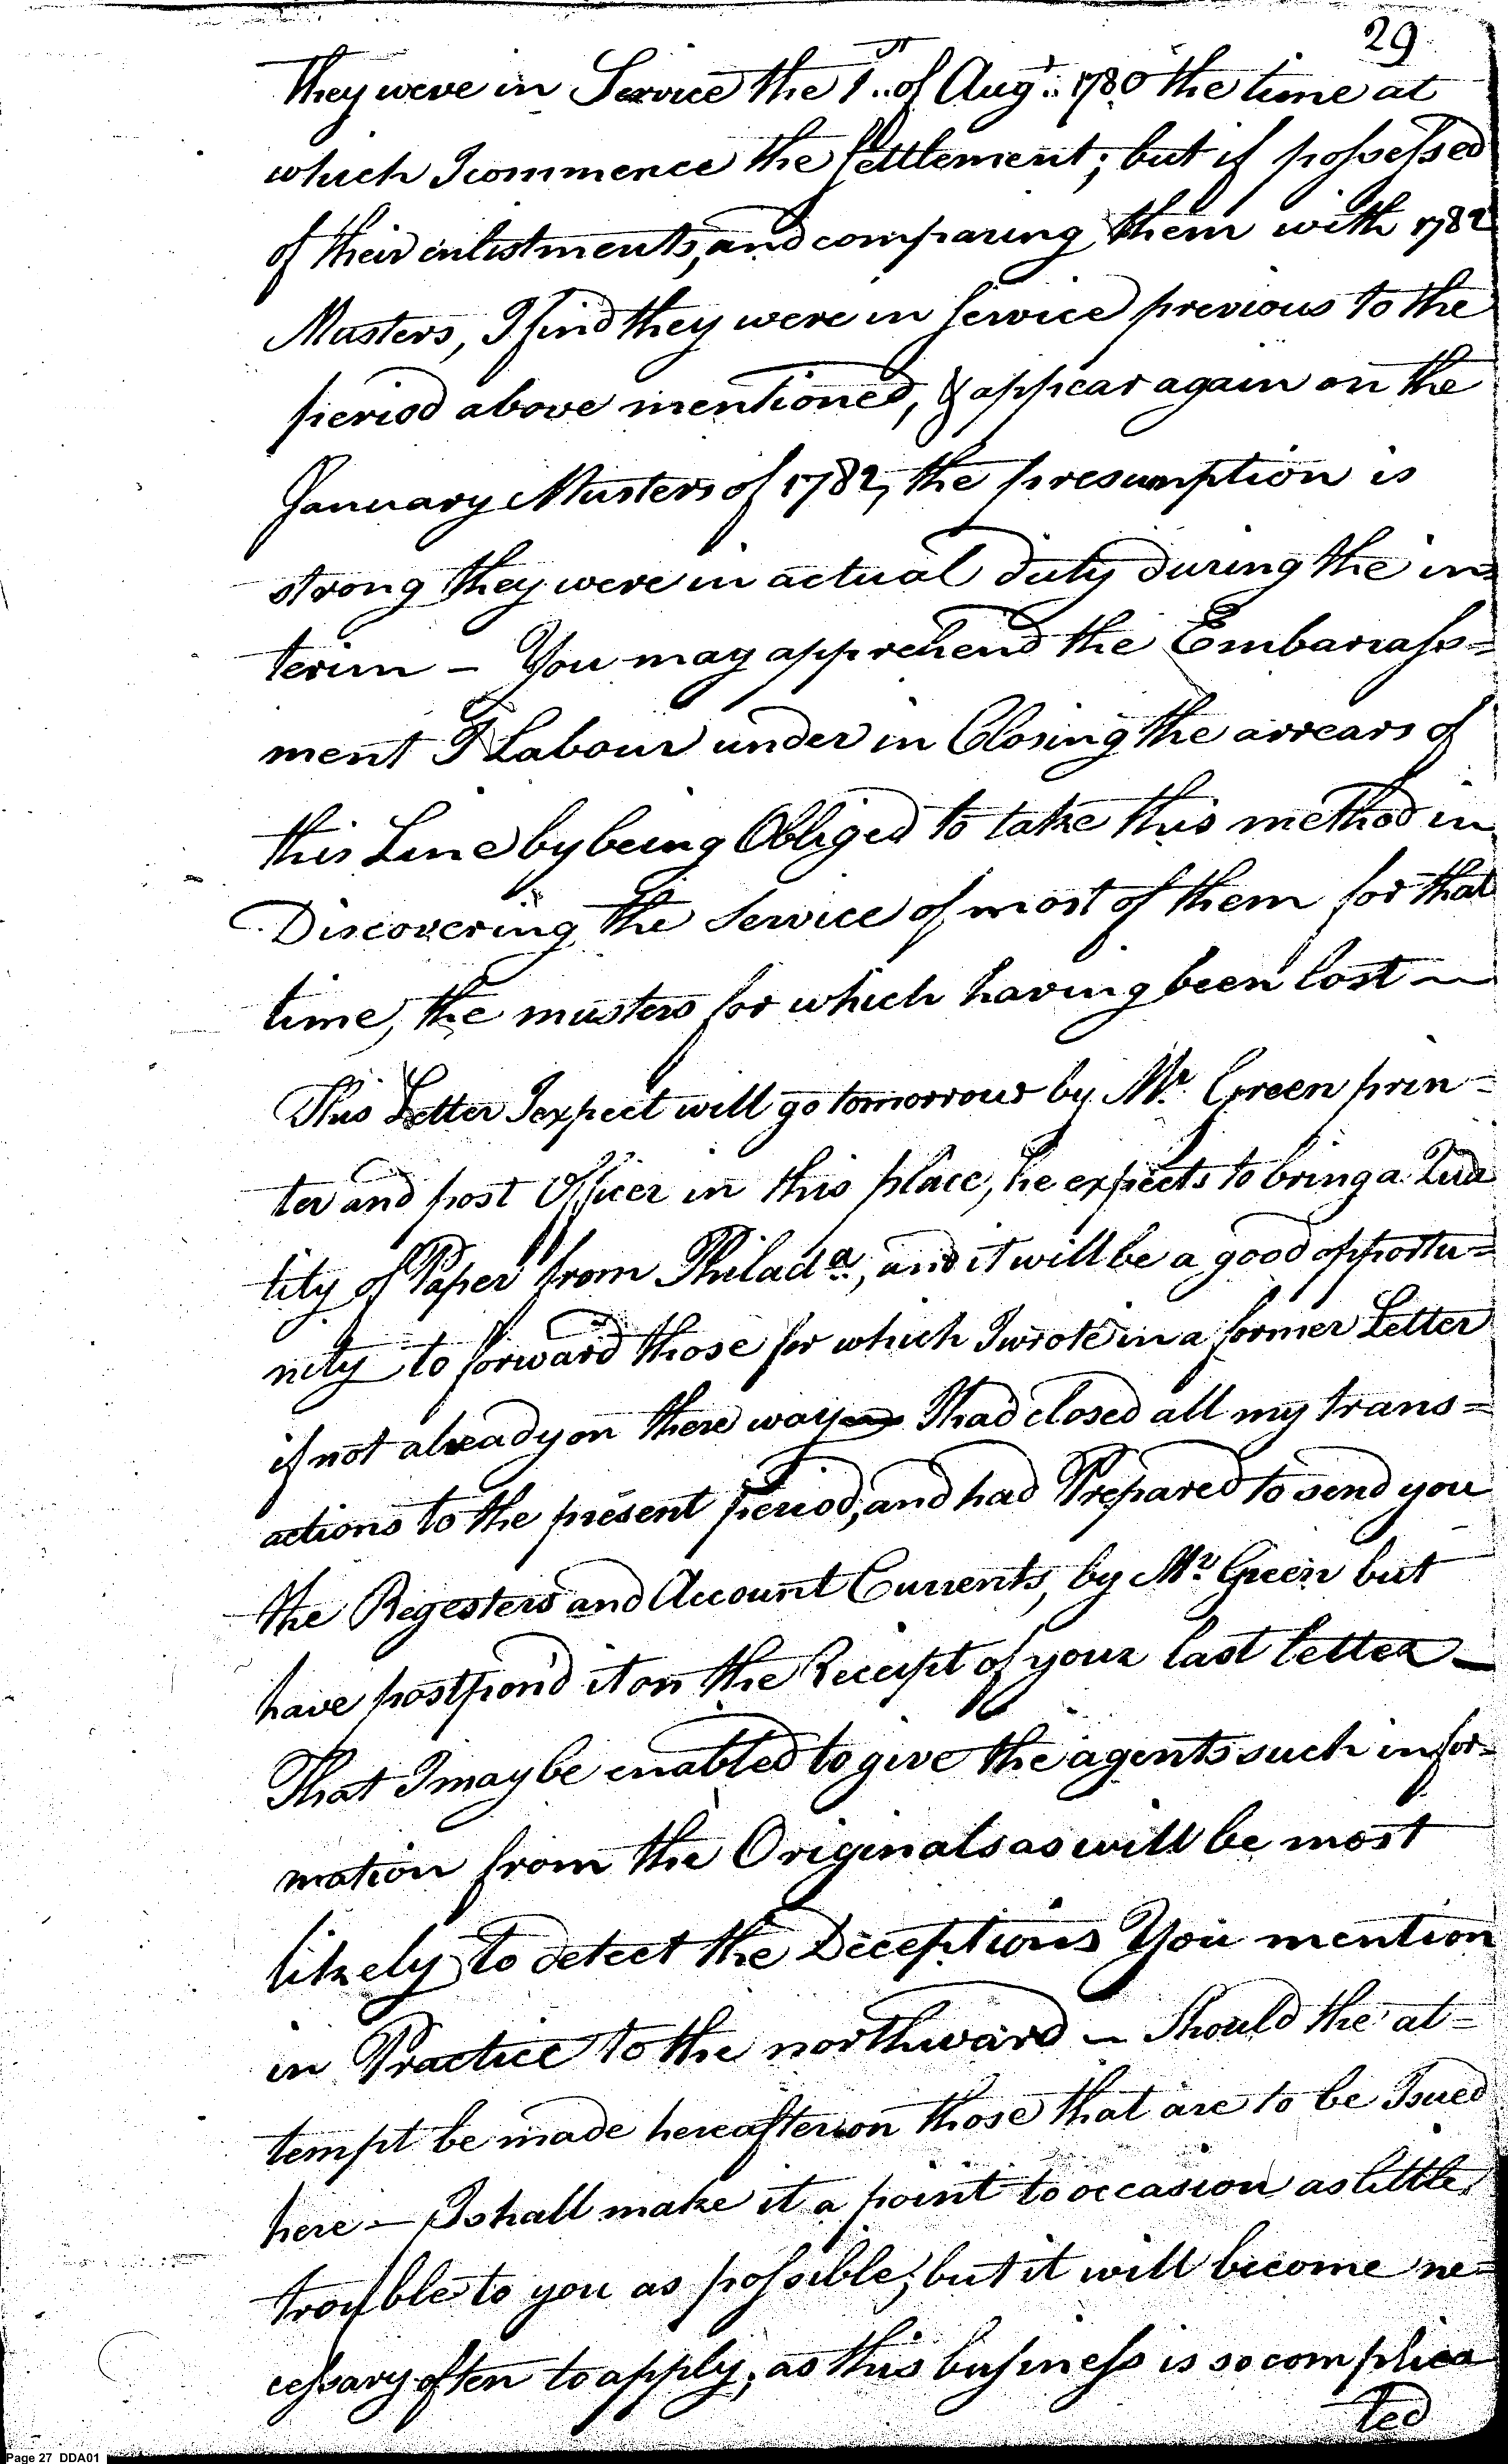 29
they were in Service the 1st of Augt 1780 the time at
which I commence the Settlement; but if possessed
of their enlistments, and comparing them with 1782
Musters, I find they were in Service previous to the
period above mentioned, & appear again on the
January Musters of 1782, the presumption is
strong they were in actual duty during the in=
terim – You may apprehend the Embarrass=
ment I Labour under in Closing the arrears of
this Line by being Obliged to take this method in
Discovering the Service of most of them for that
time, the musters for which having been lost –
This Letter I expect will go tomorrow by Mr. Green prin=
ter and post Officer in this place, he expects to bring a Qua
tity of Paper from Philada., and it will be a good opportu=
nity to forward those for which I wrote in a former Letter
if not already on there way – I had closed all my trans=
actions to the present period, and had Prepared to send you
the Regesters and Account Currents, by Mr. Green but
have postpond it on the Receipt of your last letter –
That I may be enabled to give the agents such infor=
mation from the Originals as will be most
likely to detect the Deceptions You mention
in Practice to the northward – Should the at=
tempt be made hereafter on those that are to be Isued
here – I shall make it a point to occasion as little
trouble to you as possible; but it will become ne=
cessary often to apply, as this business is so complica
ted
Page 27 DDA01